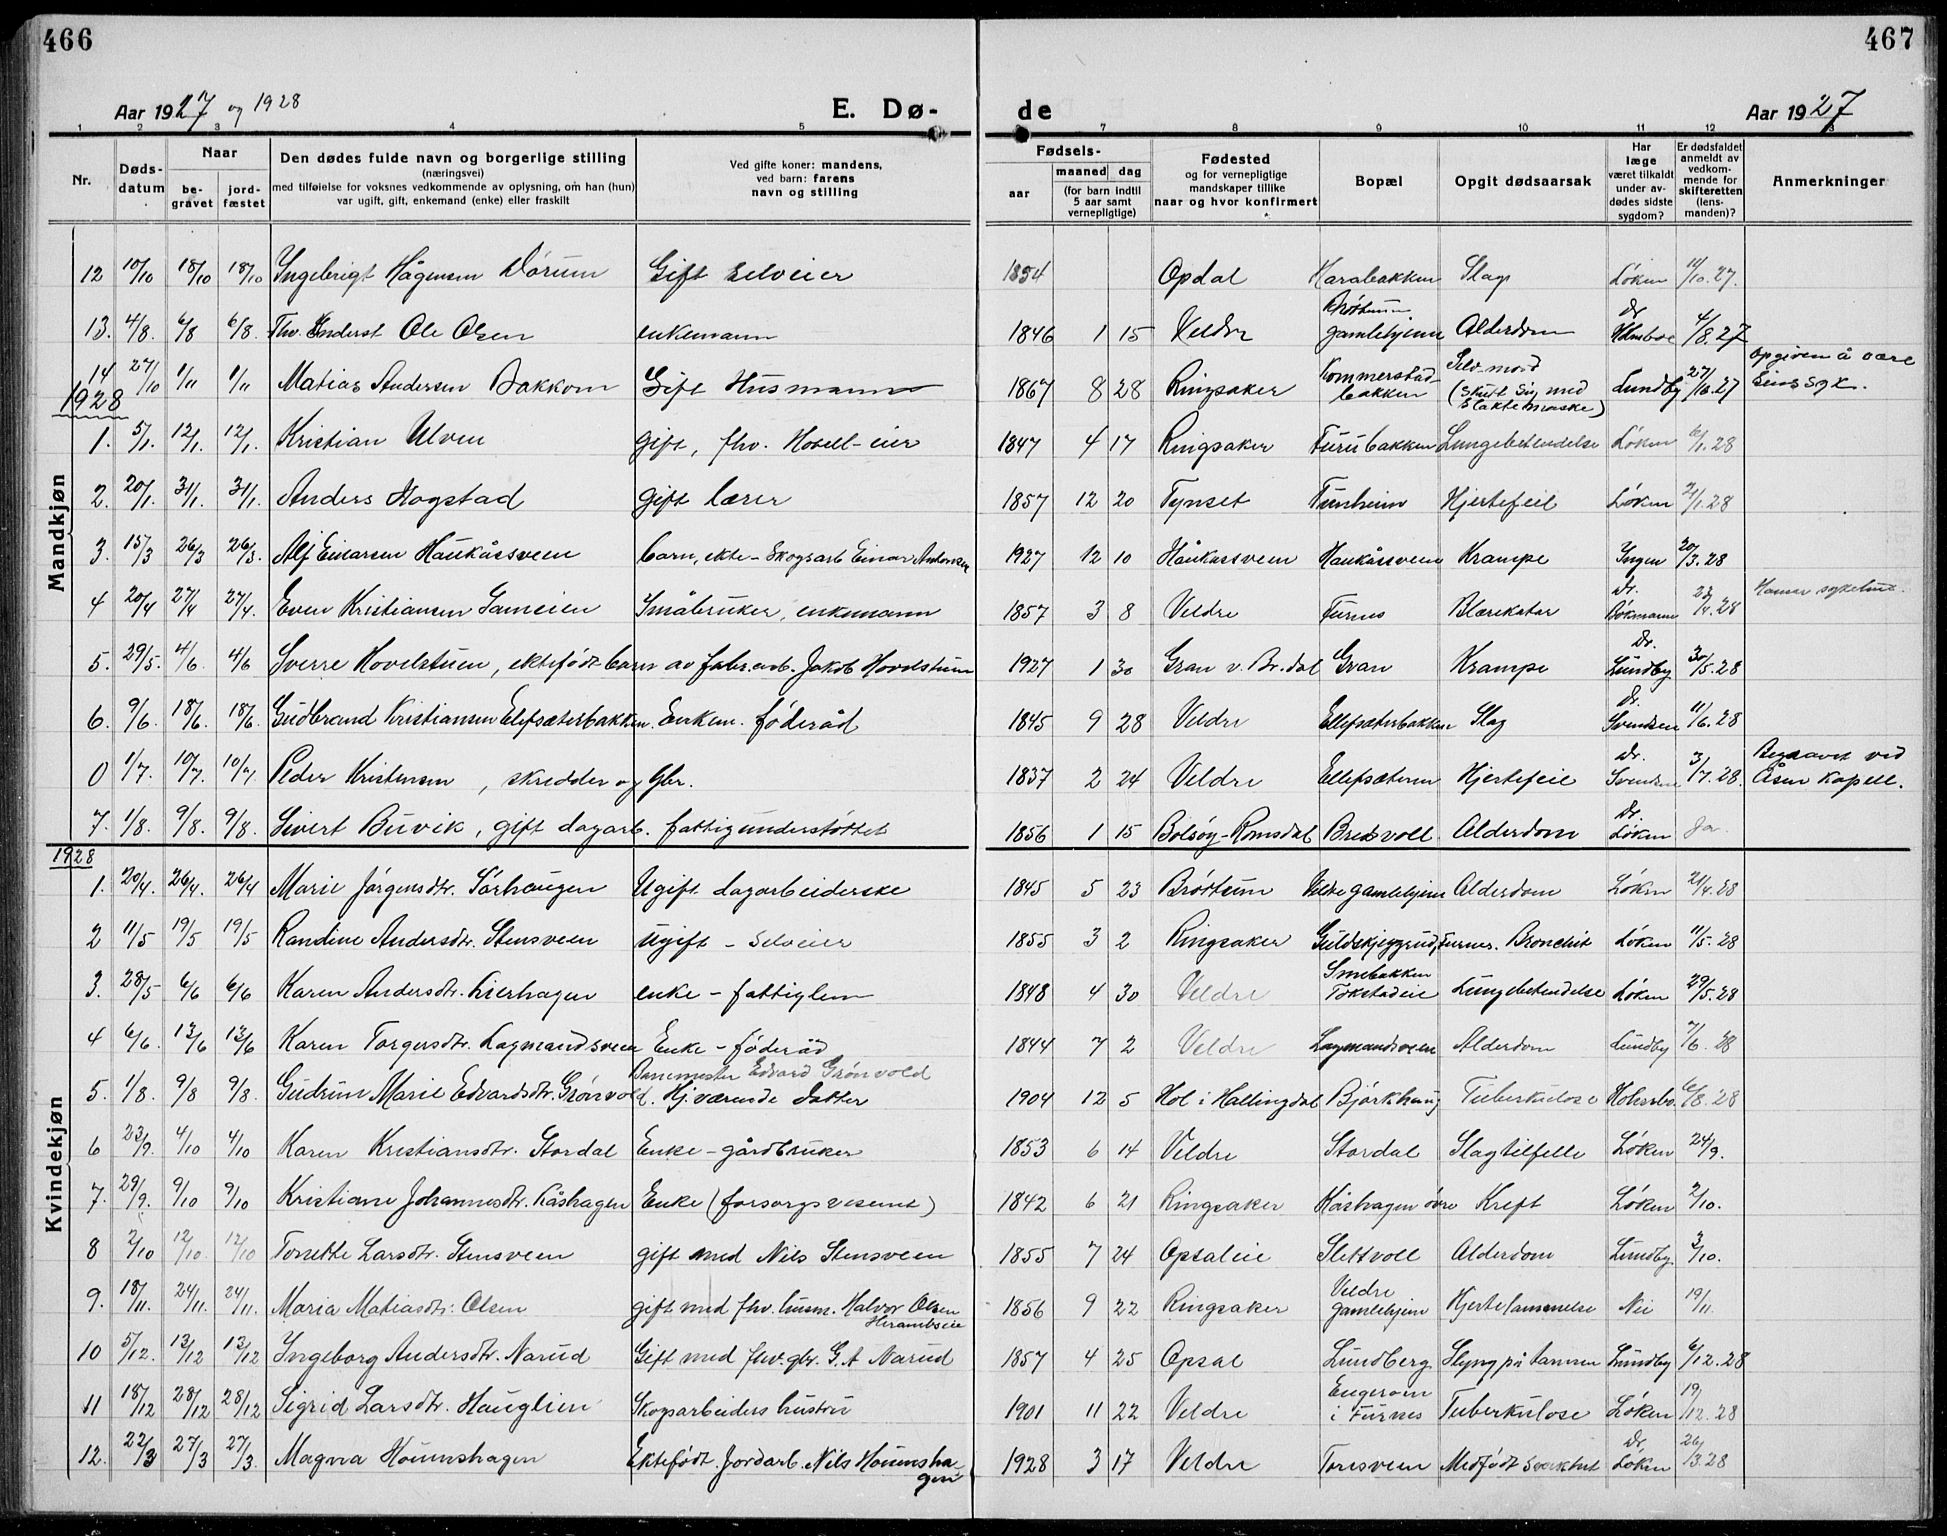 466
467
Aar 1927 og 1928
E. Dø-
de
Aar 1927
1 2 3 4 5 7 8 9 10 11 12 13
Nr.
Døds-datum
Naar
be-gravet
jord-fæstet
Den dødes fulde navn og borgerlige stilling
(næringsvei)
med tilføielse for voksnes vedkommende av oplysning, om han (hun)
var ugift, gift, enkemand (enke) eller fraskilt
Ved gifte koner: mandens,
ved barn: farens
navn og stilling
Fødsels-
aar
maaned dag
(for barn indtil
5 aar samt
vernepligtige)
Fødested
og for vernepligtige
mandskaper tillike
naar og hvor konfirmert
Bopæl
Opgit dødsaarsak
Har
læge
været tilkaldt
under av-
dødes sidste
sygdom?
Er dødsfaldet
anmeldt av
vedkom-
mende for
skifteretten
(lens-
manden)?
Anmerkninger
Mandkjøn
12 10/10 18/10 18/10 Ingebrigt Hågensen Dörum Gift selveier 1854 Opdal Harabakken Slag Løken 11/10.27.
13. 4/8. 6/8 6/8. Ole Olsen enkemann 1846 1 15 Veldre Brøttum gamlehjem Alderdom Dr Holmboe 4/8.27
14 27/10 1/11 1/11 Matias Andersen Bakkom Gift Husmann 1867 8 28 Ringsaker Kommerstad-bakken Selvmord (Skutt sig med slaktemaske) Lundby 27/10.27 Opgiven å være sinssyk.
1928
1. 5/1. 12/1. 12/1. Kristian Ulven gift, fhv. Hotell-eier 1847 4 17 Ringsaker Furubakken Lungebetendelse Løken 6/1.28
2. 20/1. 31/1. 31/1. Anders Hogstad gift lærer 1857 12 20 Tynset Tunheim Hjertefeil Løken 21/1.28
3. 15/3 26/3 26/3. Alf Einarsen Haukåssveen barn, ekte - Skogsarb Einar Antonsen 1927 12 10 Haukåssveen Haukåssveen Krampe Ingen 20/3.28
4 20/4 27/4 27/4. Even Kristiansen Gameien Småbruker, enkemann 1857 3 8 Veldre Furnes Blærekatar Dr. Bökmann 23/4.28 Hamar sykehus.
5. 29/5. 4/6. 4/6 Sverre Hovelstuen, ektefødt barn av fabr.arb. Jakob Hovelstuen 1927 1 30 Gran v. Br.dal Gran Krampe Dr. Lundby 30/5.28
6. 9/6. 18/6. 18/6. Gudbrand Kristiansen Elefsæterbakken. Enkem. föderåd 1845 9 28 Veldre Ellefsæterbakken Slag Dr. Svendsen 11/6.28
0 1/7. 10/7. 10/7. Peder Kristensen, skredder og Gbr. 1837 2 24 Veldre Ellefsæteren Hjertefeil Dr. Svendsen 3/7.28. Begravet ved Åsen Kapell.
7. 1/8. 9/8. 9/8. Sivert Buvik, gift dagarb. fattigunderstöttet 1856 1 15 Bolsöy-Romsdal Bredsvoll Alderdom Dr. Løken Ja.
1928
Kvindekjøn
1. 20/4. 26/4. 26/4 Marie Jörgensdtr. Sörhaugen Ugift dagarbeiderske 1845 5 23 Brøttum Veldre gamlehjem Alderdom Løken 21/4.28
2 11/5 19/5 19/5 Randine Andersdtr. Stensveen Ugift - selveier 1855 3 2 Ringsaker Guldskjeggrud, Furnes. Bronchit Løken 11/5.28
3. 28/5 6/6 6/6 Karen Andersdtr. Lierhagen enke - fattiglem 1848 4 30 Veldre Smebakken Tokstadeie Lungebetendelse Løken 29/5.28
4 6/6. 13/6 13/6 Karen Torgersdtr. Lagmandsveen Enke - föderåd 1844 7 2 Veldre Lagmandsveen Alderdom Lundby 7/6.28
5. 1/8. 9/8 9/8. Gudrun Marie Edvardsdtr. Grönvold. Banemester Edvard Grönvold Hj.værende datter 1904 12 5 Hol i Hallingdal Björkhaug Tuberkulose Holmbo. 6/8.28
6 23/9. 4/10 4/10 Karen Kristiansdtr. Stordal Enke - gårdbruker 1853 6 14 Veldre Stordal Slagtilfelle Løken 24/9.
7. 29/9. 9/10 9/10 Kristiane Johannesdtr. Kåshagen Enke (forsorgsvesenet) 1842 6 21 Ringsaker Kåshagen övre Kreft Løken 2/10.
8 2/10 12/10. 12/10 Tonette Larsdtr. Stensveen gift med Nils Stensveen 1855 7 24 Opsaleie Slettvoll Alderdom Lundby. 3/10.
9. 18/11. 24/11. 24/11. Maria Matiasdtr. Olsen gift med fhv. husm. Halvor Olsen 1856 9 22 Ringsaker Veldre gamlehjem Hjertelammelse Nei 19/11.
10 5/12. 13/12 13/12 Ingeborg Andersdtr. Narud Gift med fhv. gbr. G. A Narud 1857 4 25 Opsal Lundberg Slyng på tarmen Lundby 6/12.28
11 18/12 28/12 28/12 Sigrid Larsdtr. Hauglien Skogsarbeiders hustru 1901 11 22 Veldre Engerom i Furnes Tuberkulose Løken 19/12.28
12. 22/3 27/3 27/3. Magna Hounshagen Ektefødt. Jordarb. Nils Hounshagen 1928 3 17 Veldre Toresveen Medfødt svakhet Dr. Løken 26/3.28